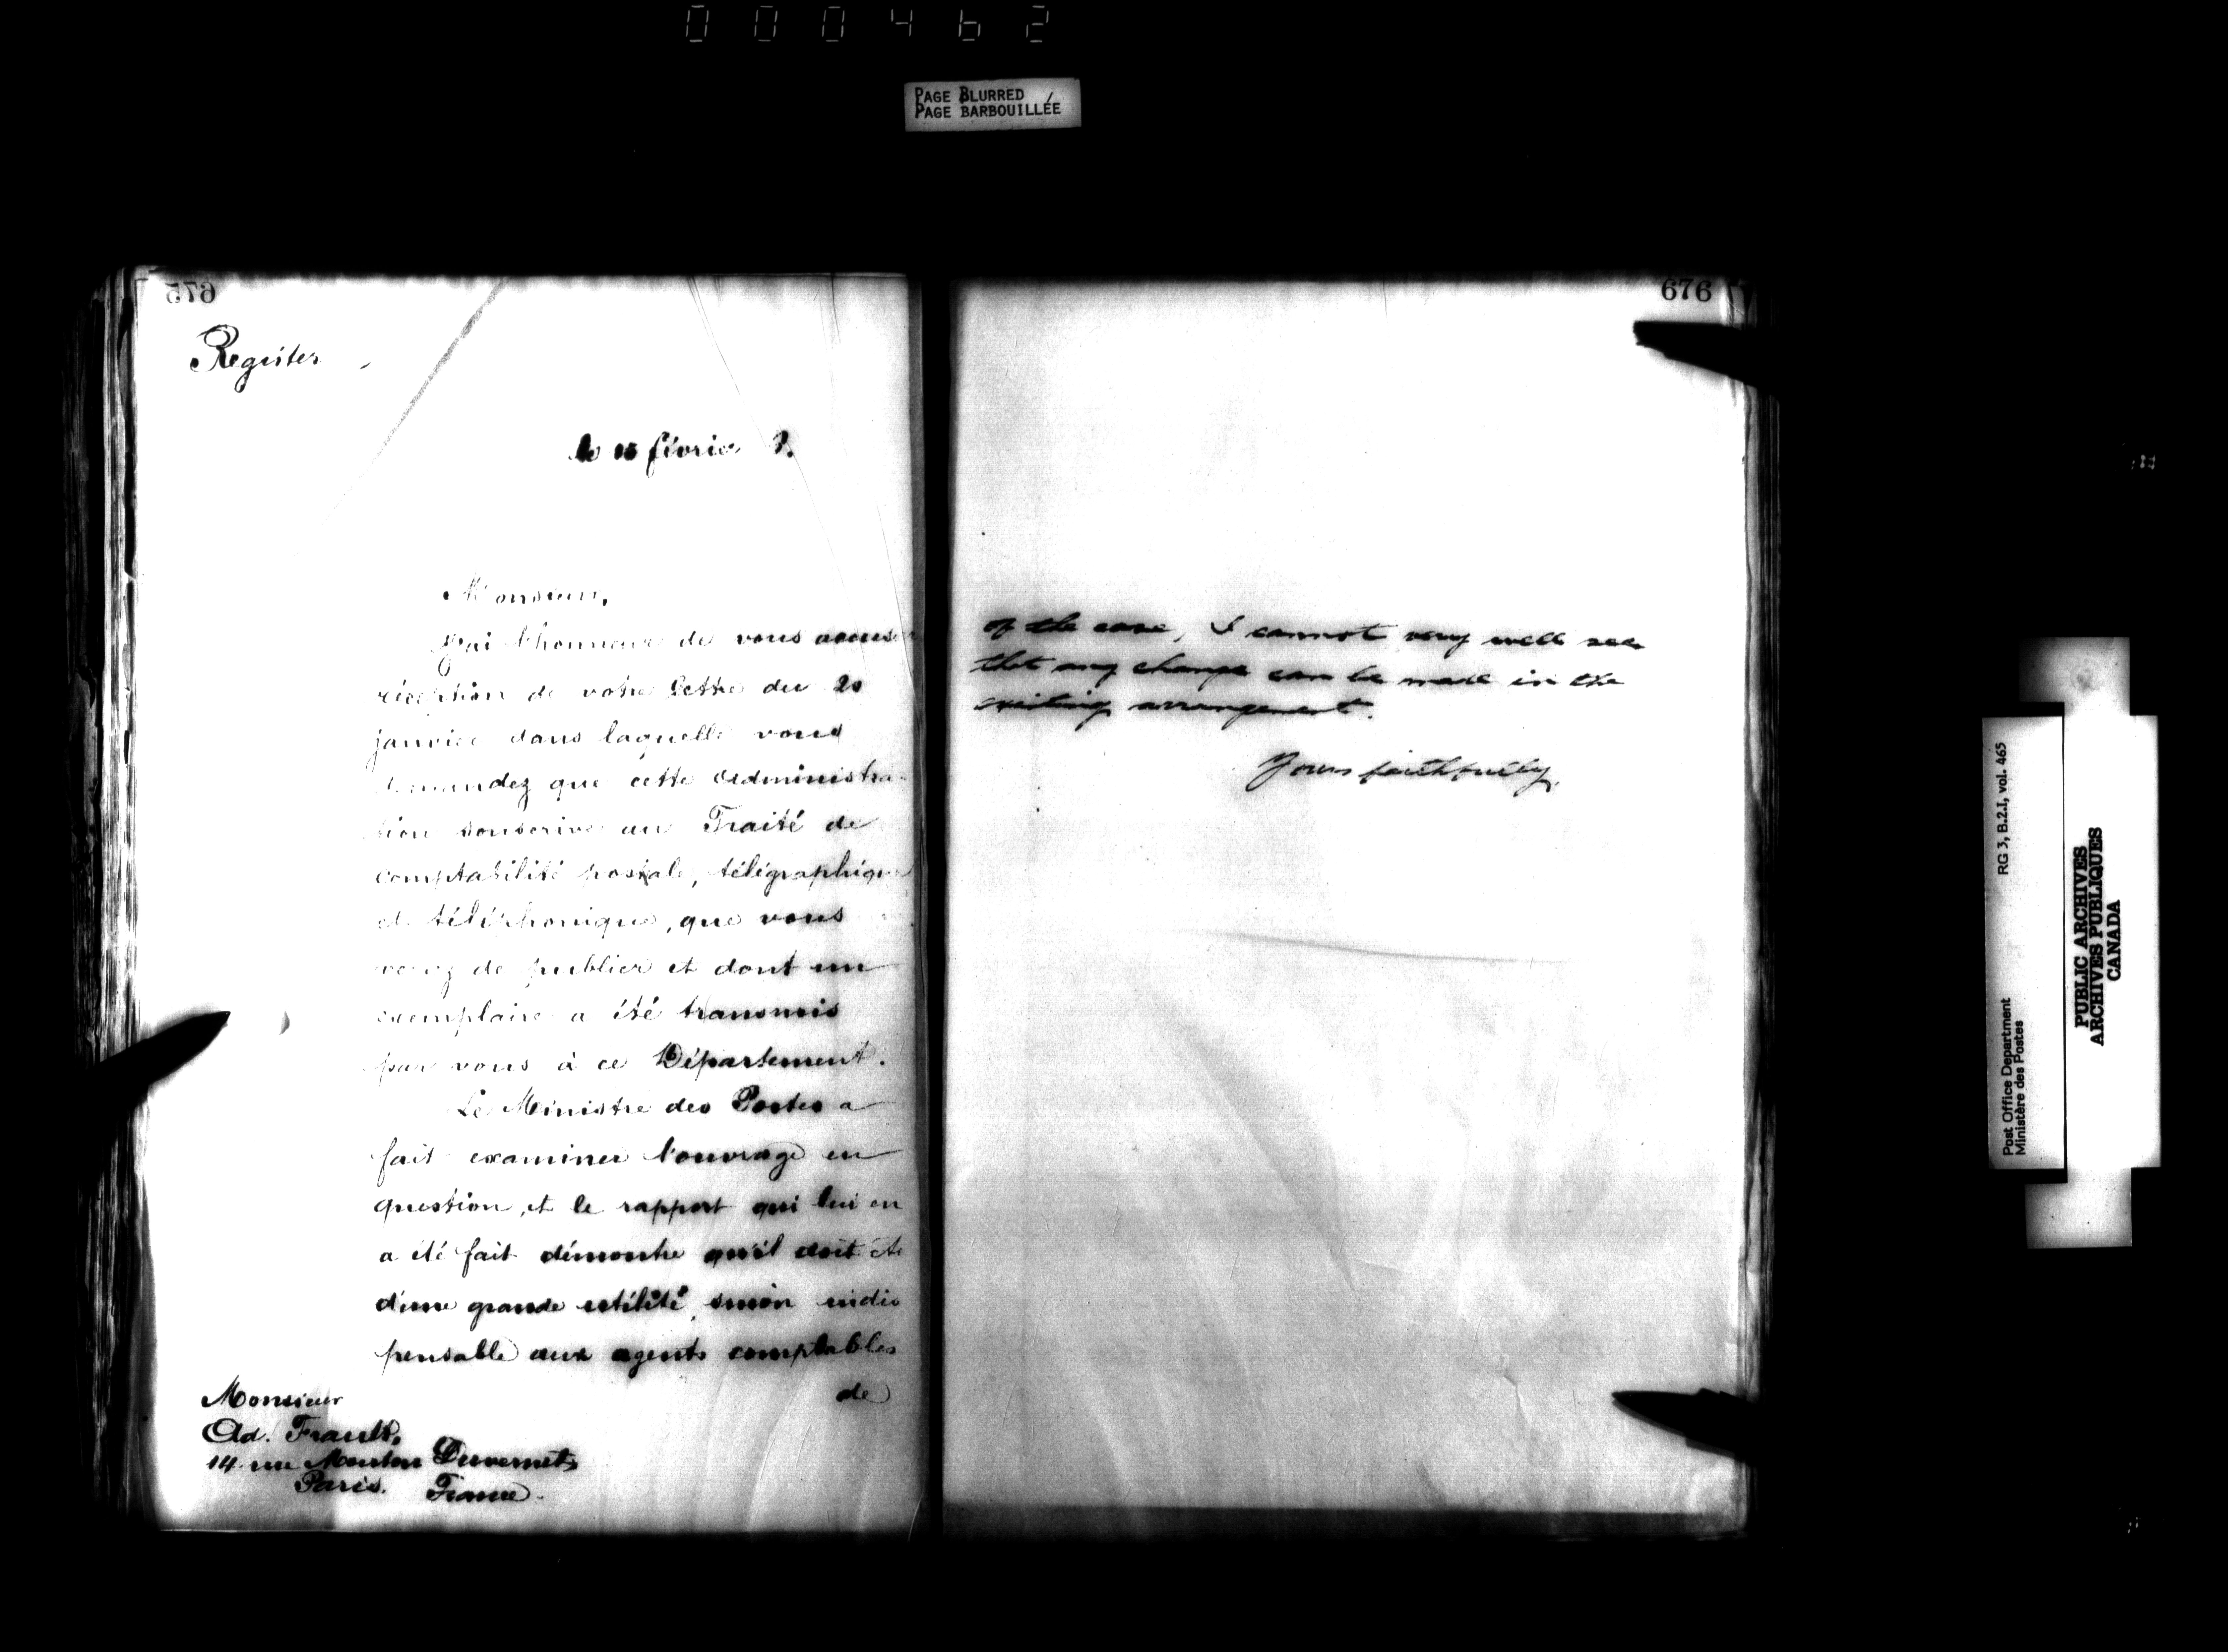 000462
PAGE BLURRED
PAGE BARBOUILLÉE
675
Register
le 15 février
Monsieur,
J'ai l'honneur de vous accuser
réception de votre lettre du 20
janvier dans laquelle vous
demandez que cette administra-
tion souscrive au Traité de
comptabilité postale, télégraphique
et téléphonique, que vous
venez de publier et dont un
exemplaire a été transmis
par vous à ce Département.
Le Ministre des Postes a
fait examiner l'ouvrage en
question, et le rapport qui lui en
a été fait démontre qu'il doit être
d'une grande utilité, sinon indis
pensable aux agents comptables
de
Monsieur
Ad. Frault,
14 rue Mouton Duvernet,
Paris. France.
676
of the case, I cannot very well see
that any change can be made in the
existing arrangement.
Yours faithfully,
RG 3, B.2.I, vol. 465
Post Office Department
Ministère des Postes
PUBLIC ARCHIVES
ARCHIVES PUBLIQUES
CANADA